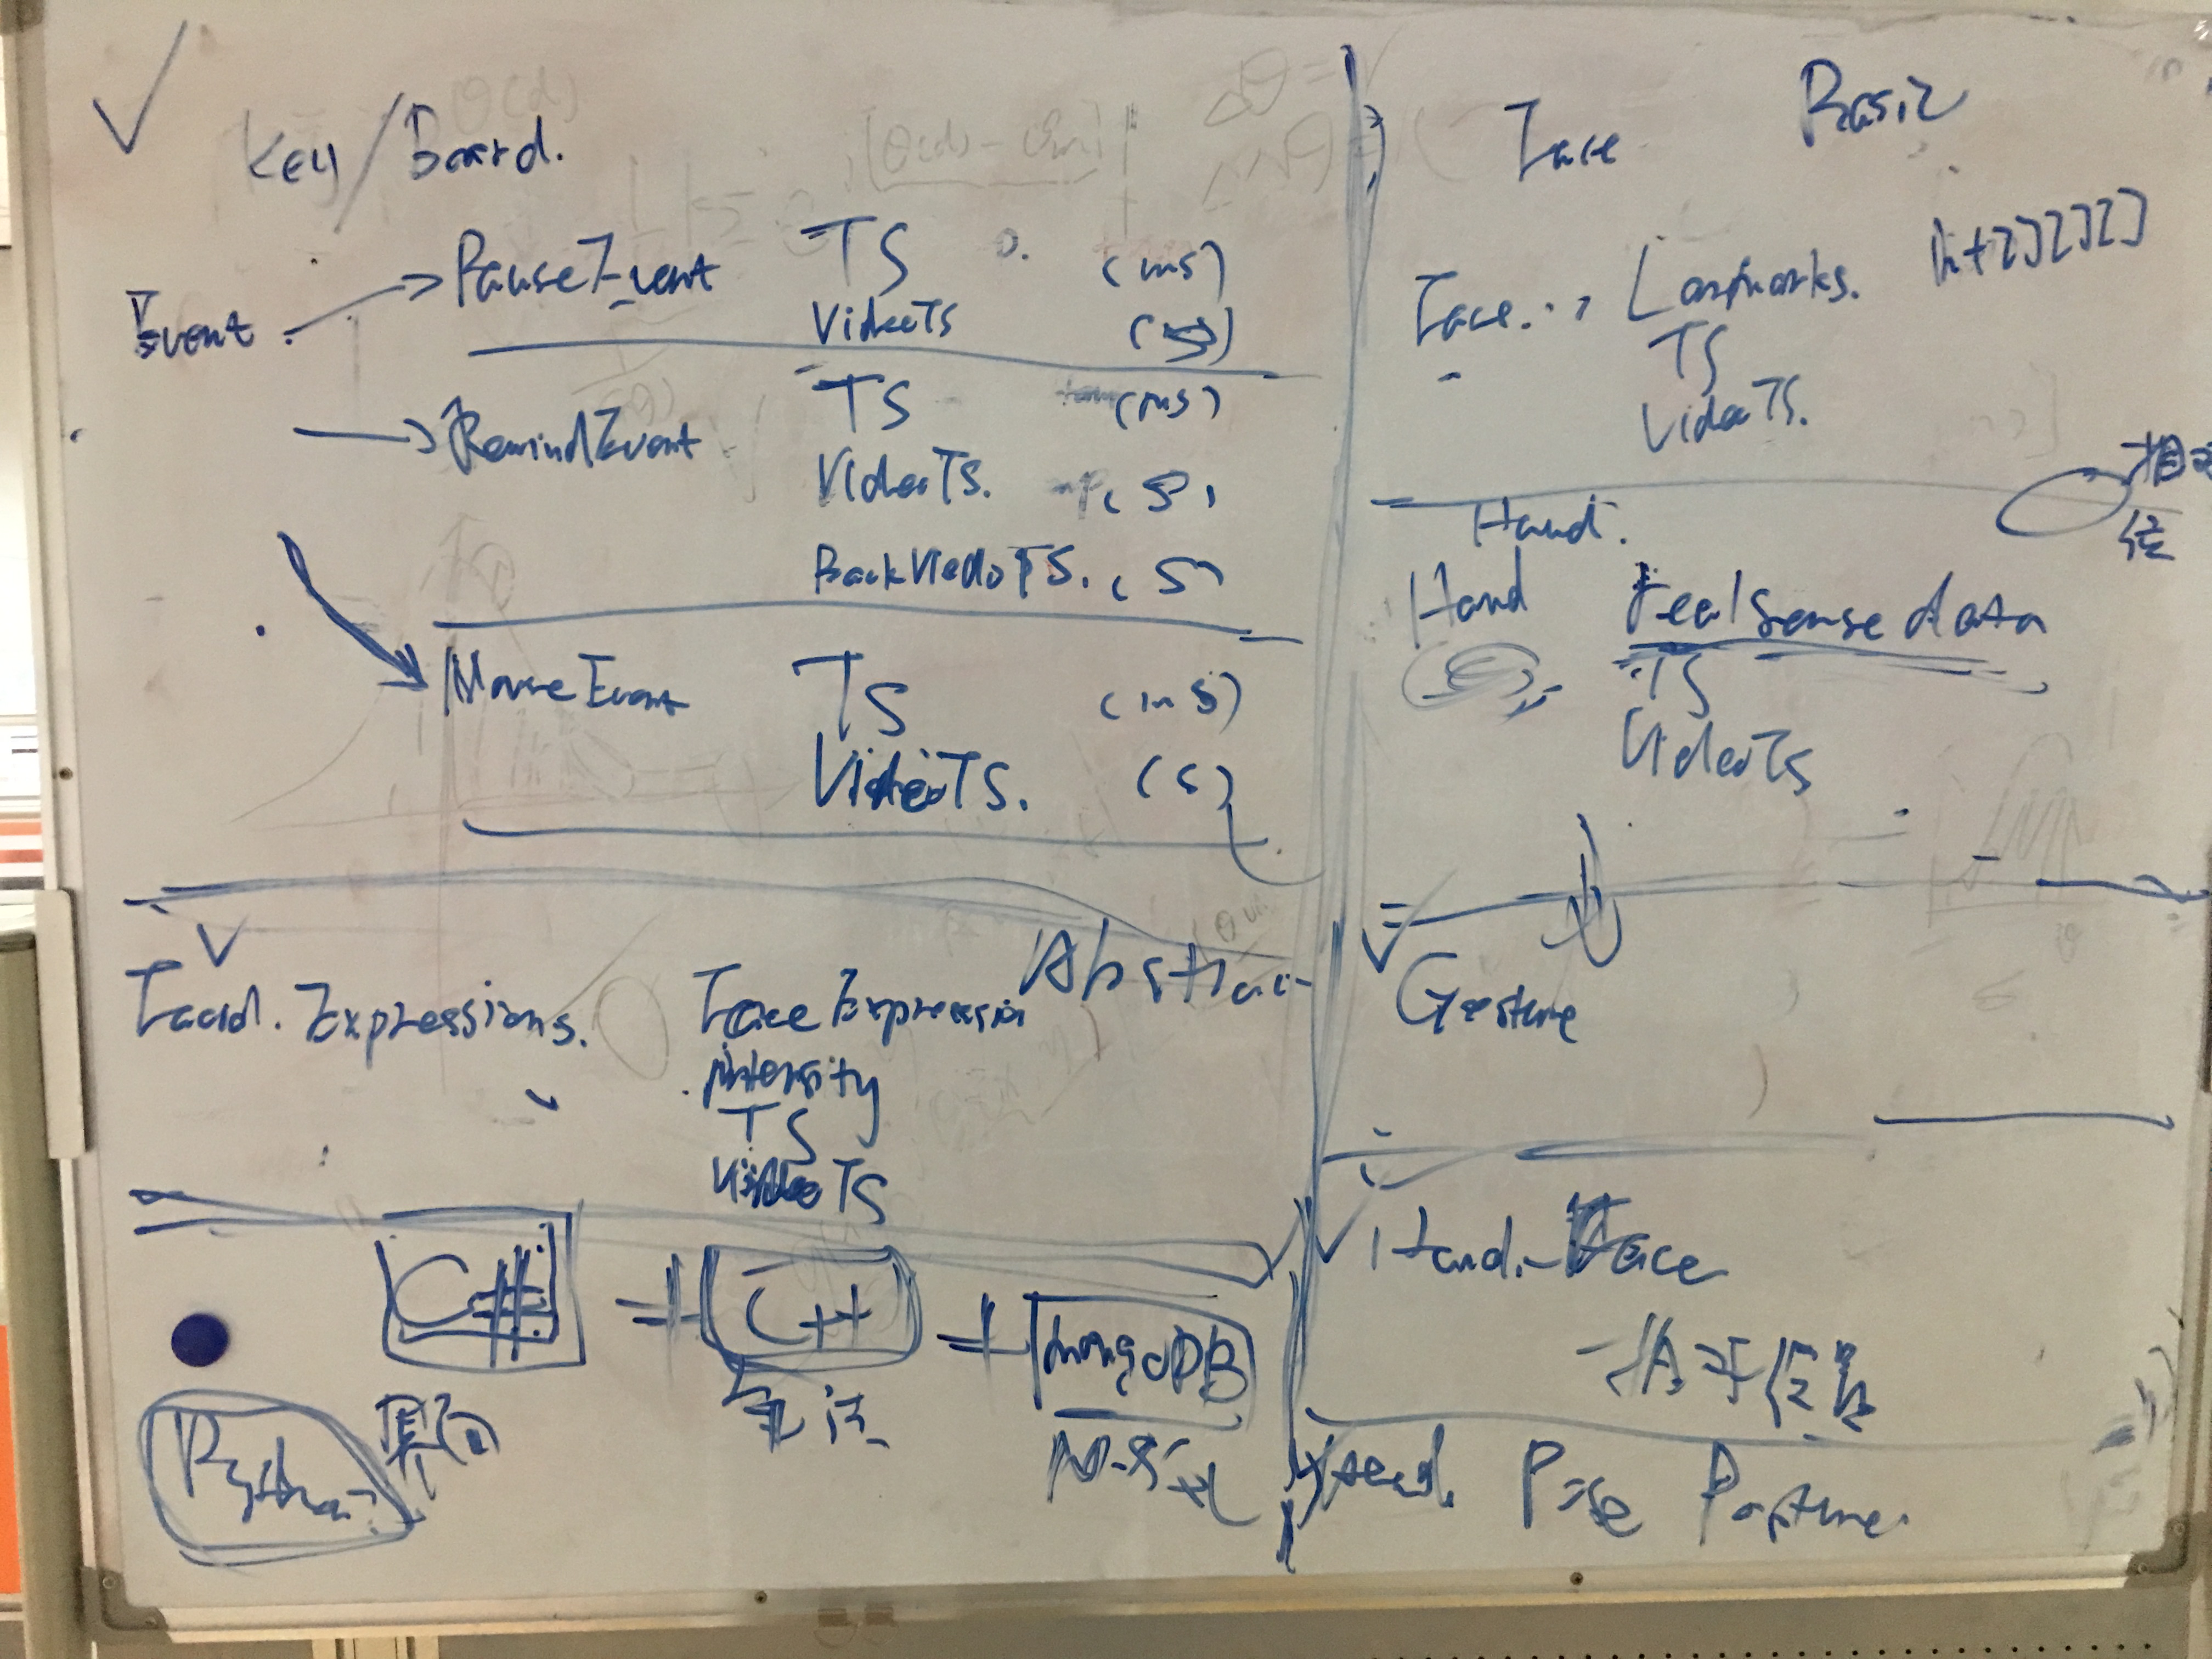 Key/Board.
Event
PauseEvent TS (ms)
VideoTS (s)
RewindEvent TS (ms)
VideoTS. (s)
BackViedoTS. (s)
MouseEvent TS (ms)
VideoTS. (s)
Abstrac
Facial. Expressions. FaceExpression
intensity
TS
VideoTS
C# + C++ + MongoDB
算法
Python
Face Basic
Face. Landmarks.
TS
VideoTS.
Hand.
Hand RealSense data
TS
VideoTS
Gesture
Hand-Face
Head. Pose Posture.